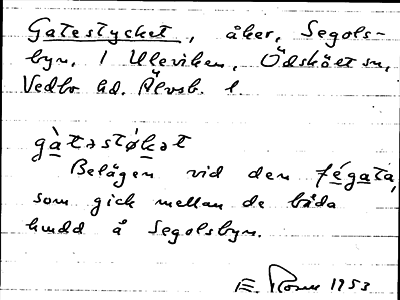 Gatestycket, åker, Segols-
byn, i Uleviken, Ödskölt sn,
Vedbo hd. Älvsb. l.
gàtəstøkət
Belägen vid den fégata,
som gick mellan de båda
hudd å Segolsbyn.
E. 1953